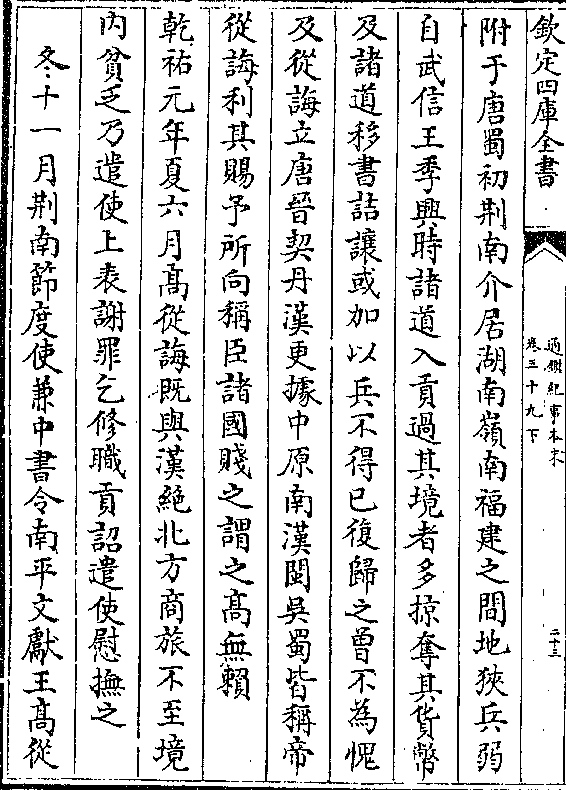 欽定四庫全書
通鑑紀事本末
卷三十九下
二十三
附于唐蜀初荆南介居湖南嶺南福建之間地狹兵弱
自武信王季興時諸道入貢過其境者多掠奪其貨幣
及諸道移書詰讓或加以兵不得已復歸之曾不為愧
及從誨立唐晉契丹漢更據中原南漢閩吳蜀皆稱帝
從誨利其賜予所向稱臣諸國賤之謂之髙無賴
乾祐元年夏六月髙從誨既與漢絶北方商旅不至境
内貧乏乃遣使上表謝罪乞修職貢詔遣使慰撫之
冬十一月荆南節度使兼中書令南平文獻王髙從